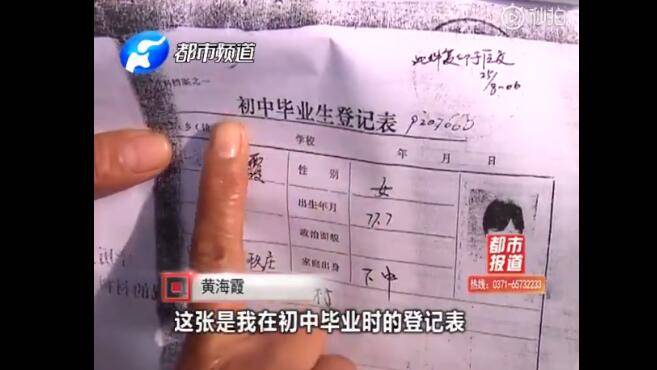 都市频道
秒拍
25/8-06
初中毕业生登记表 9207663
学校 年 月 日
霞 性别 女
出生年月 77.7
政治面貌
庄 家庭出身 下中
村
都市
报道
热线：0371-65732233
黄海霞
这张是我在初中毕业时的登记表